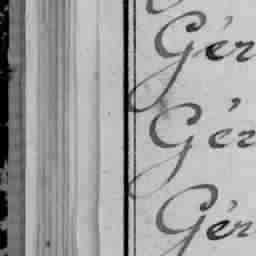 Gér
Gér
Gér